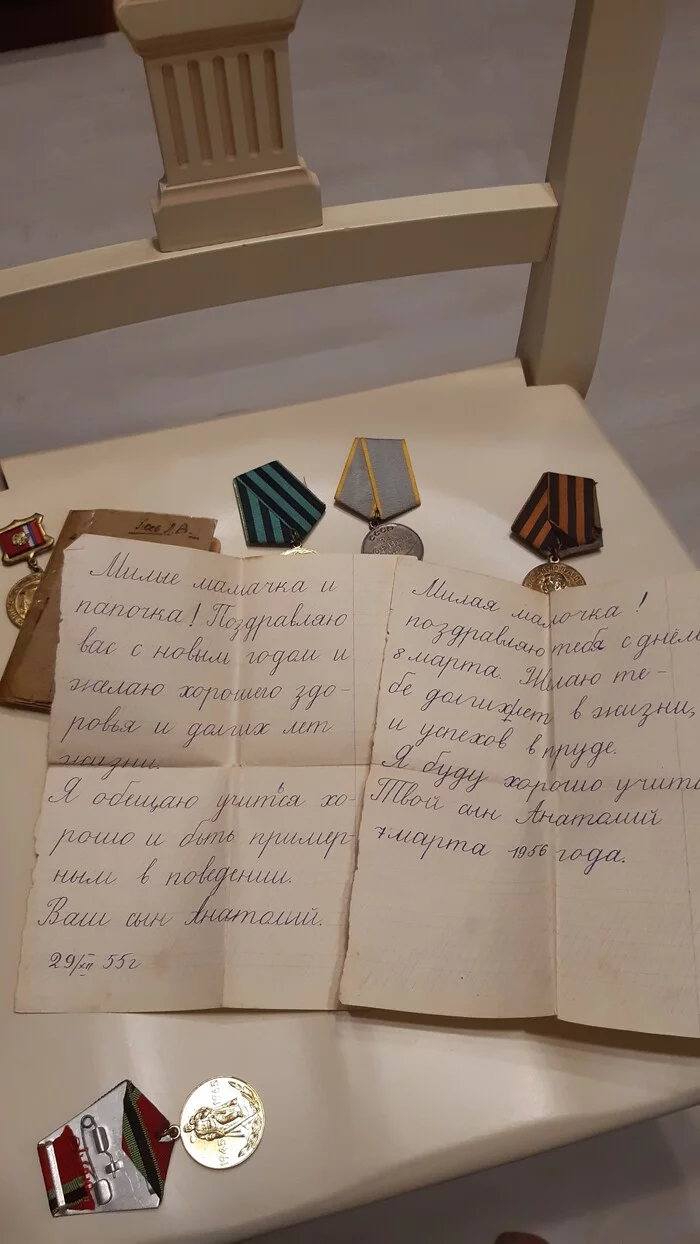 СССР
Милые мамачка и
папочка! Поздравляю
вас с новым годом и
желаю хорошего здо-
ровья и долгих лет
жизни.
Я обещаю учиться хо-
рошо и быть пример-
ным в поведении.
Ваш сын Анатолий.
29/XII 55г
Милая мамочка!
поздравляю тебя с днём
8 марта. Желаю те-
бе долгих лет в жизни,
и успехов в труде.
Я буду хорошо учить
Твой сын Анатолий
7 марта 1956 года.
1945 1965